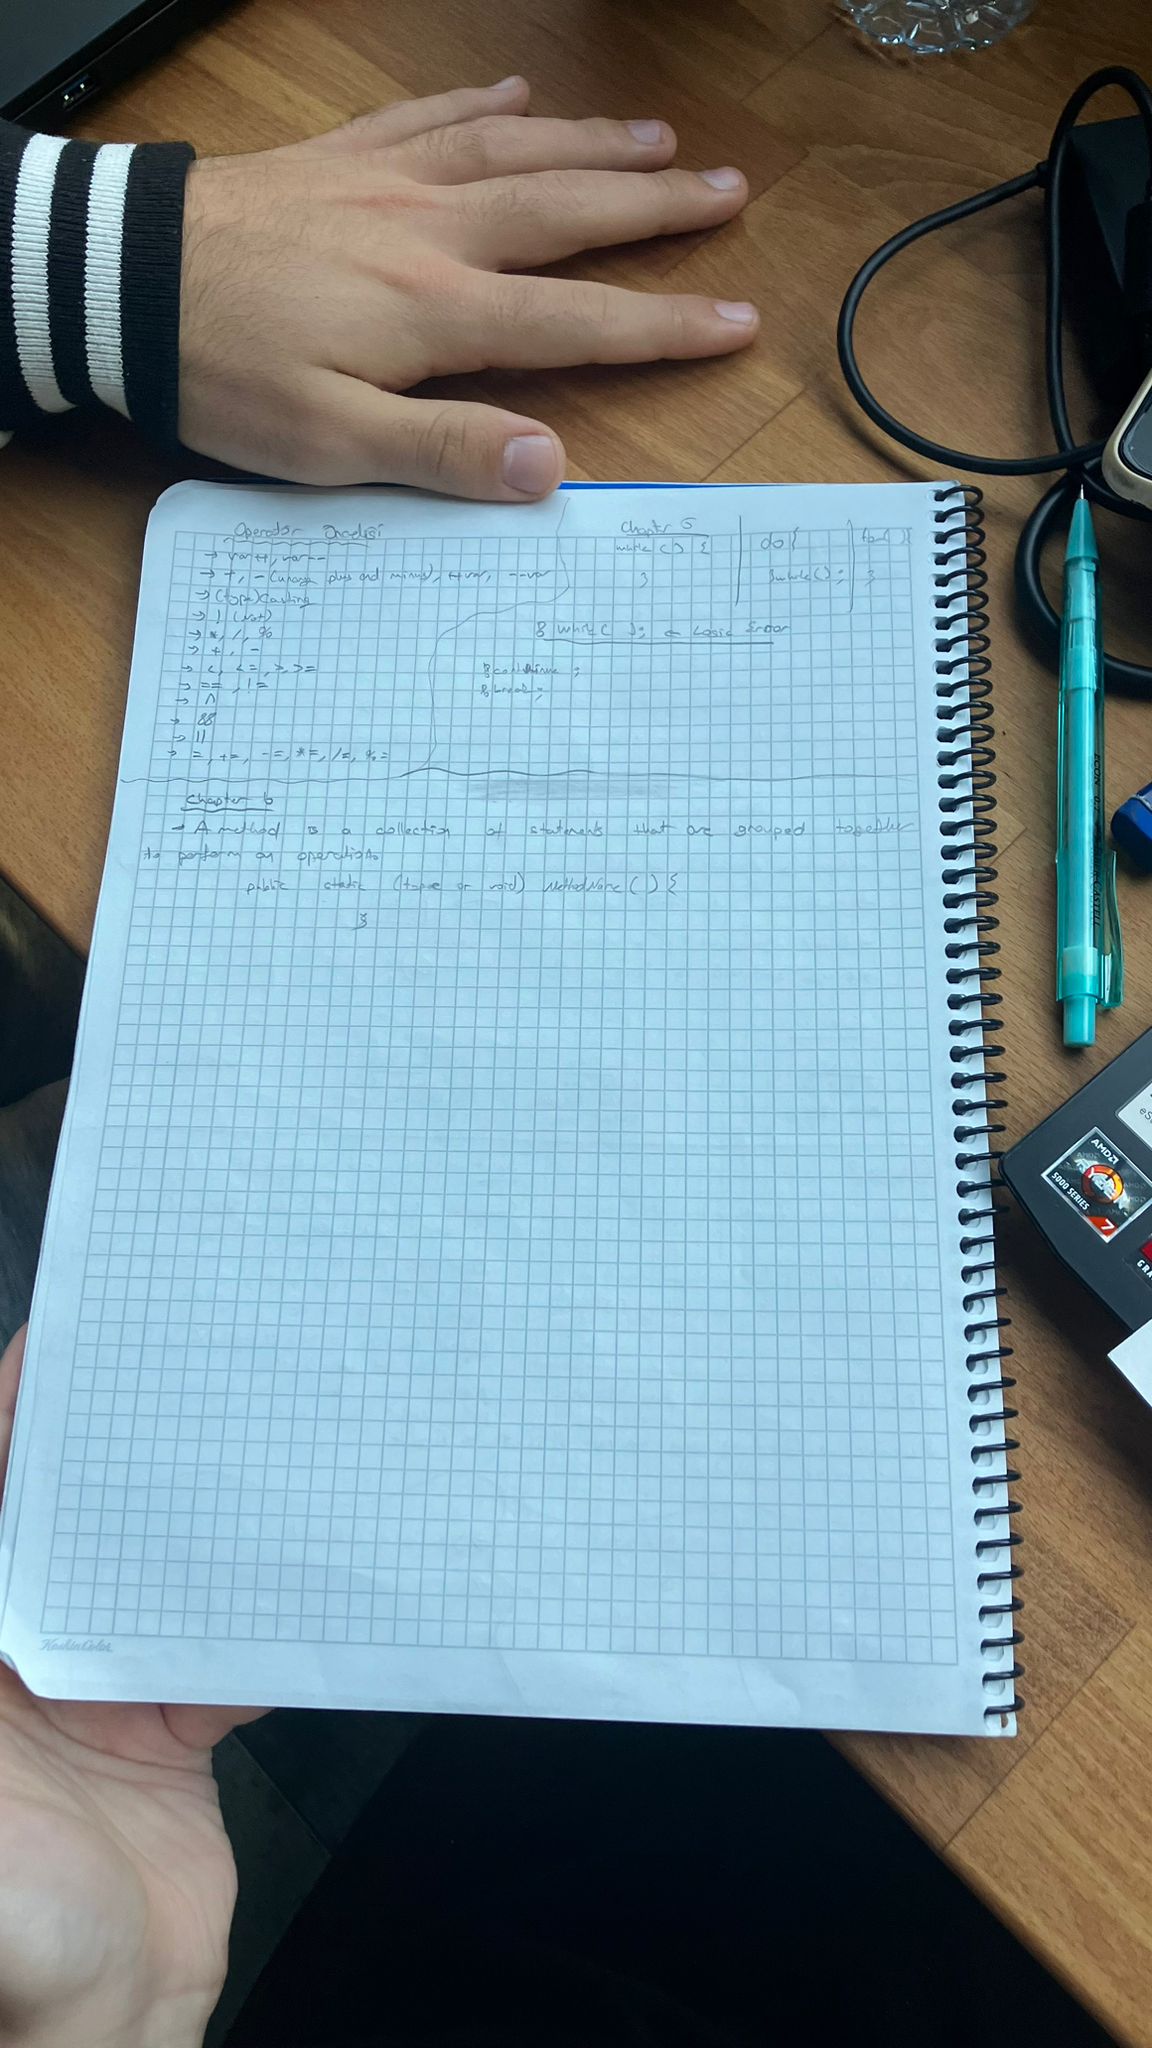 Operatör Önceliği
→ var++, var--
→ +, - (unary plus and minus), ++var, --var
→ (type) Casting
→ ! (Not)
→ *, /, %
→ +, -
→ <, <=, >, >=
→ ==, !=
→ ^
→ &&
→ ||
→ =, +=, -=, *=, /=, %=
Chapter 5
while () {
}
do {
} while();
for( ){
}
while( ); ← Logic Error
continue;
break;
Chapter 6
→ A method is a collection of statements that are grouped together
to perform an operation.
public static (type or void) MethodName () {
}
KeskinColor
ECON 0.7
FABER-CASTELL
AMD
5000 SERIES
7
GRA